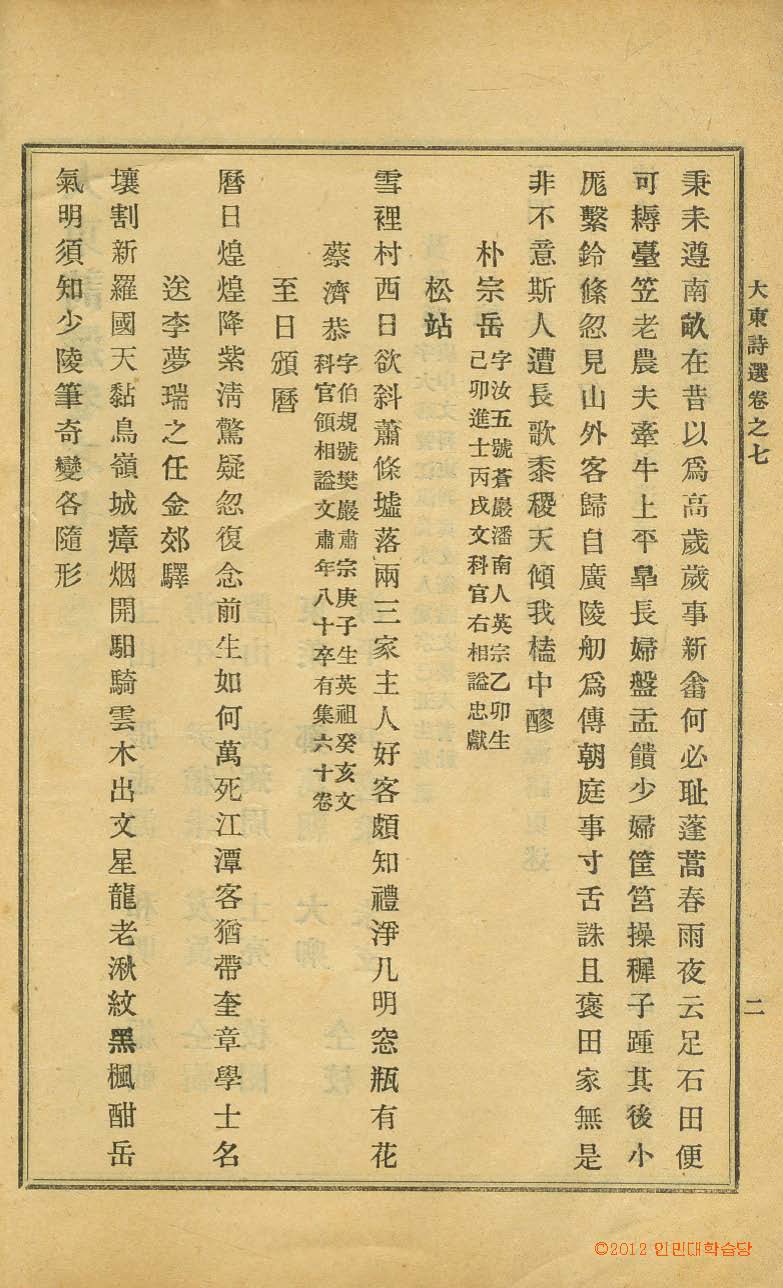 大東詩選卷之七
二
秉耒遵南畝在昔以爲高歲歲事新畬何必耻蓬蒿春雨夜云足石田便
可耨臺笠老農夫牽牛上平臯長婦盤盂饋少婦筐筥操穉子踵其後小
厖繫鈴絛忽見山外客歸自廣陵舠爲傳朝庭事寸舌誅且褒田家無是
非不意斯人遭長歌黍稷天傾我榼中醪
朴宗岳字汝五號蒼巖潘南人英宗乙卯生
己卯進士丙戌文科官右相謚忠獻
松站
雪裡村西日欲斜蕭條墟落兩三家主人好客頗知禮淨几明窓瓶有花
蔡濟恭字伯規號樊巖肅宗庚子生英祖癸亥文
科官領相謚文肅年八十卒有集六十卷
至日頒曆
曆日煌煌降紫淸驚疑忽復念前生如何萬死江潭客猶帶奎章學士名
送李夢瑞之任金郊驛
壤割新羅國天黏鳥嶺城瘴烟開馹騎雲木出文星龍老湫紋黑楓酣岳
氣明須知少陵筆奇變各隨形
©2012 인민대학습당